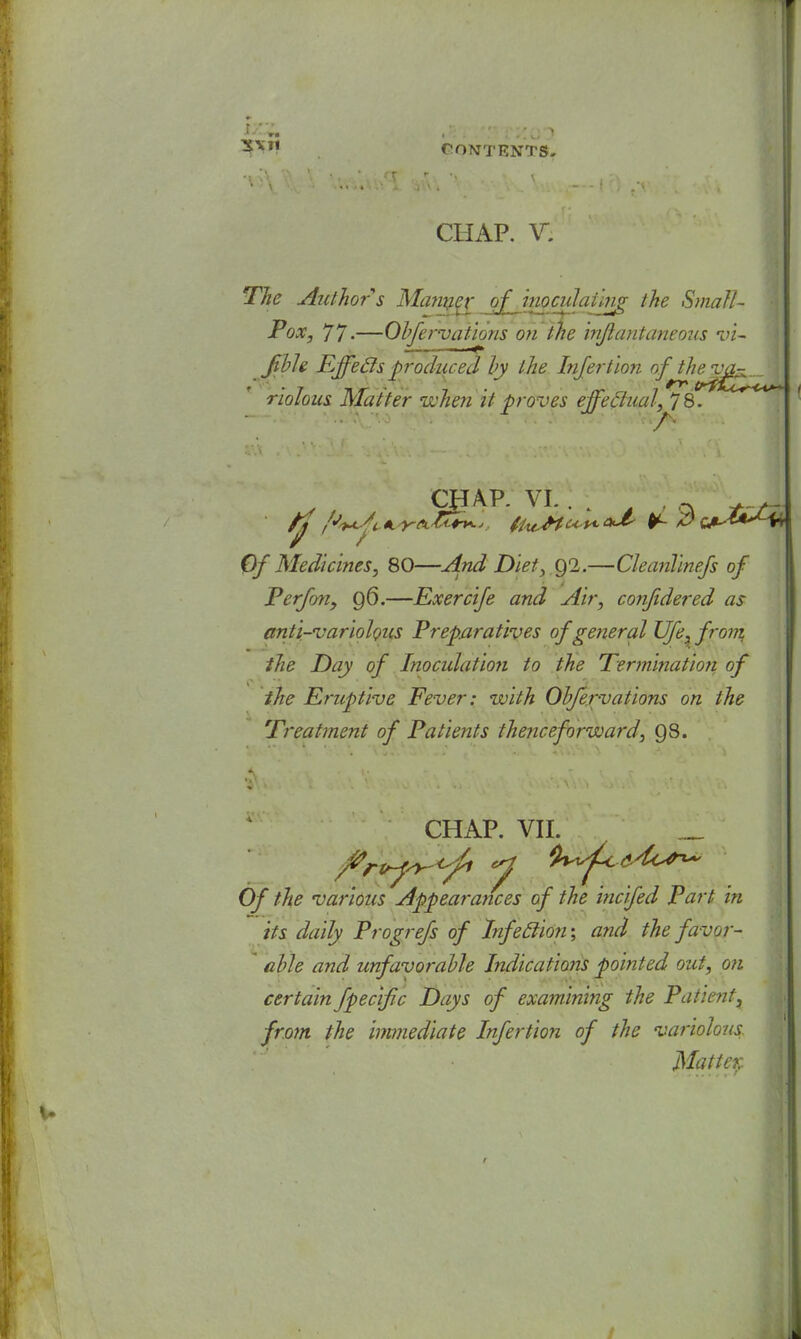 xxii CONTENTS.
CHAP. V.
The Author's Manner of inoculating the Small-
Pox, 77.—Obſervations on the inſtantaneous vi-
ſible Effects produced by the Inſertion of the va-
riolous Matter when it proves effectual, 78.
CHAP. VI.
Of Preparation,
Of Medicines, 80—And Diet, 92.—Cleanlineſs of
Perſon, 96.—Exerciſe and Air, conſidered as
anti-variolous Preparatives of general Uſe, from
the Day of Inoculation to the Termination of
the Eruptive Fever: with Obſervations on the
Treatment of Patients thenceforward, 98.
CHAP. VII.
Progreſs of Infection
Of the various Appearances of the inciſed Part in
its daily Progreſs of Infection; and the favor-
able and unfavorable Indications pointed out, on
certain ſpecific Days of examining the Patient,
from the immediate Inſertion of the variolous
Matter.